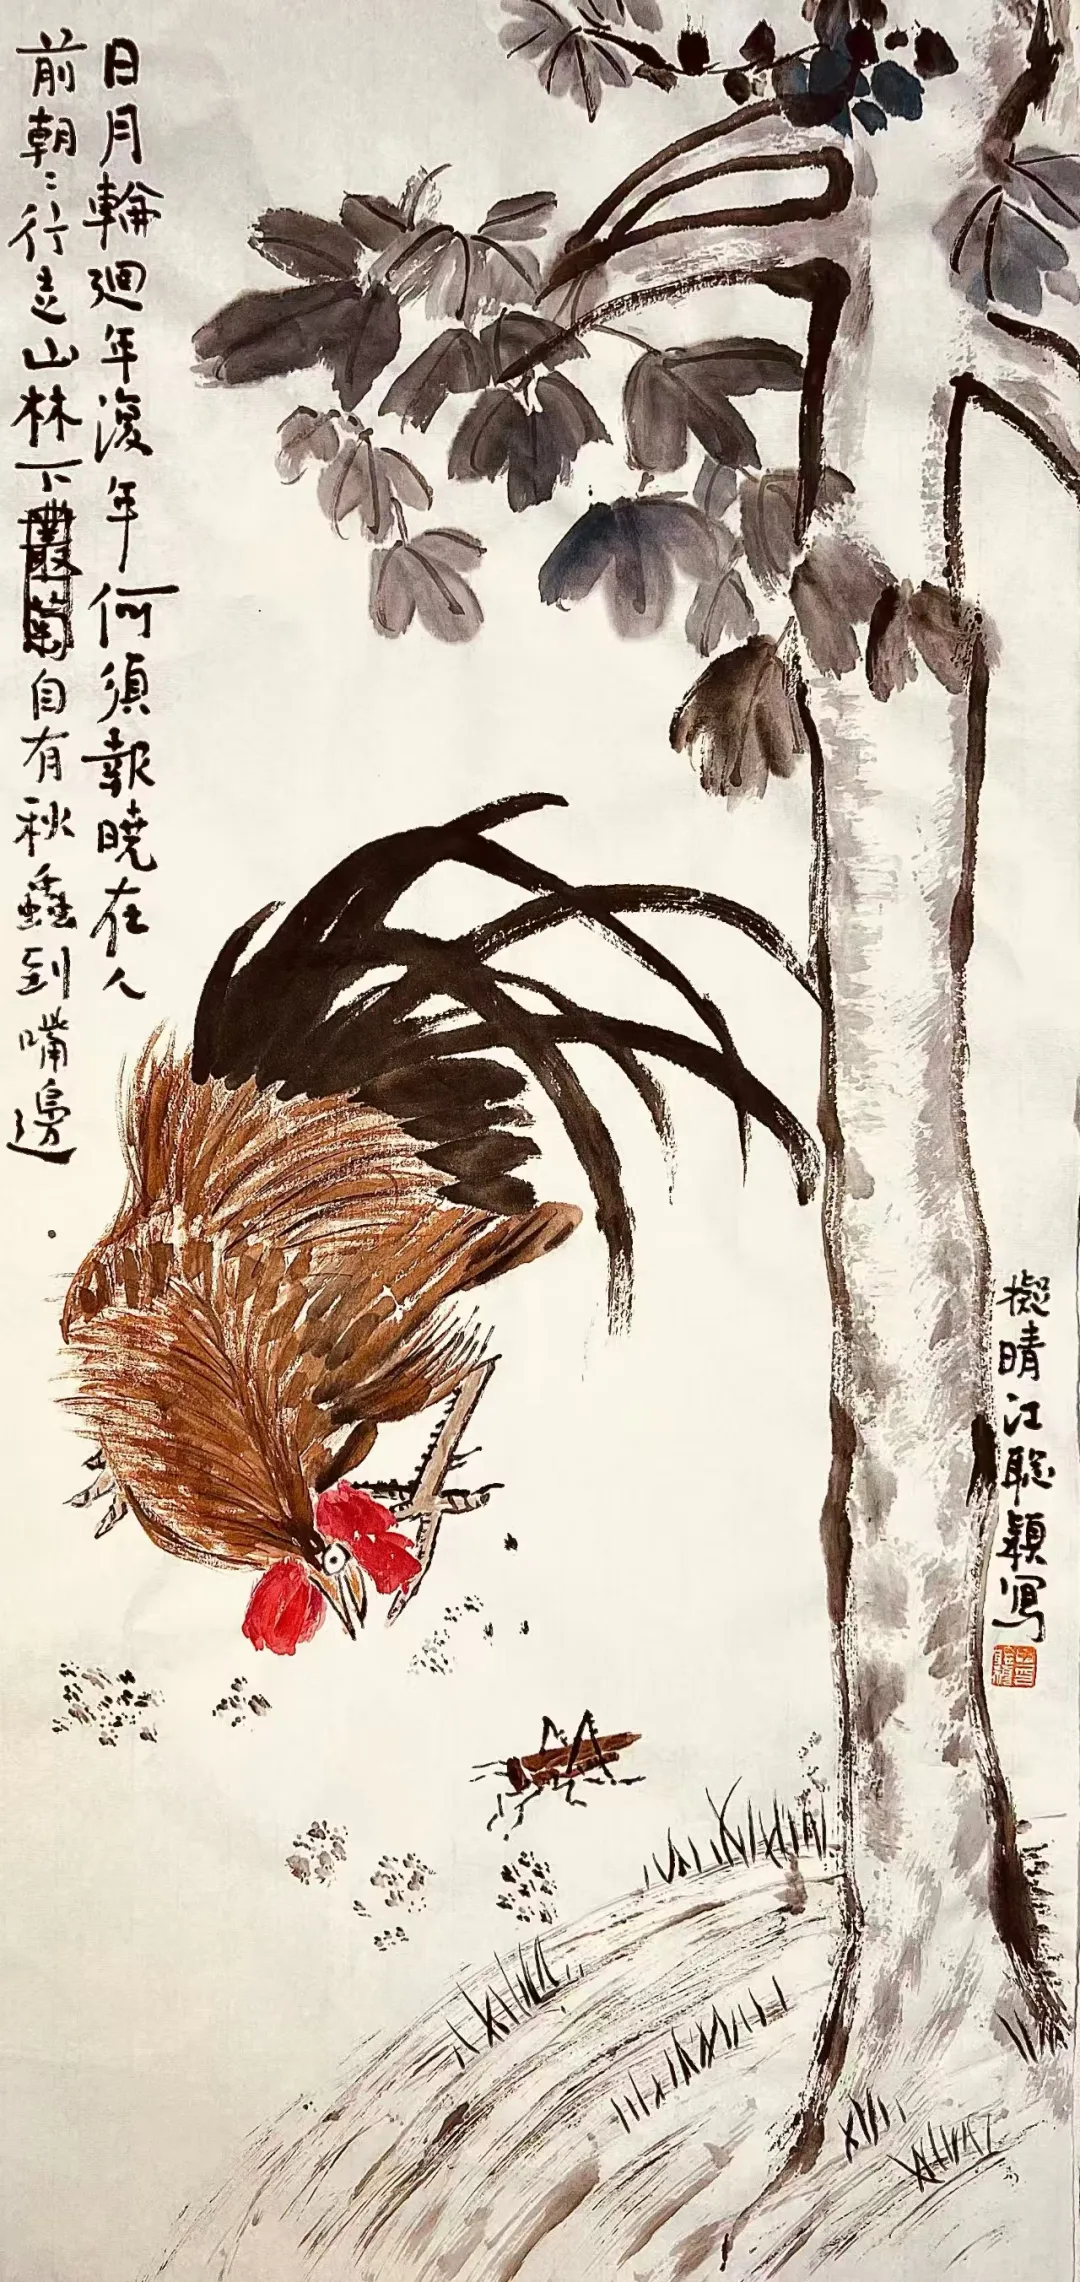 日月輪廻年復年何須報曉在人
前朝〻行走山林下自有秋蟲到嘴邊
擬晴江聰穎寫